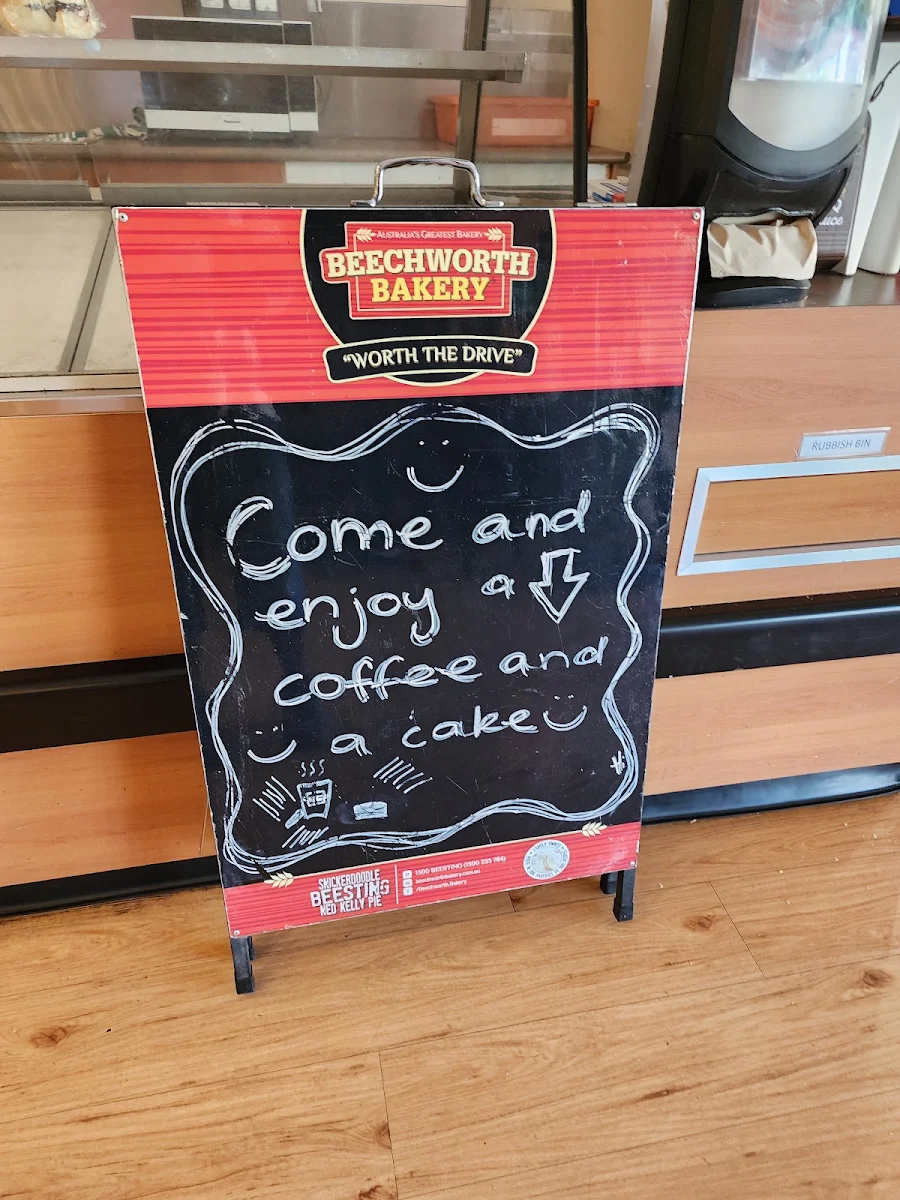 Panasonic
AUSTRALIA'S GREATEST BAKERY
BEECHWORTH
BAKERY
"WORTH THE DRIVE"
RUBBISH BIN
Come and
enjoy a
coffee and
a cake
SNICKERDOODLE
BEESTING
NED KELLY PIE
1300 BEESTING (1300 233 784)
beechworthbakery.com.au
/Beechworth.Bakery